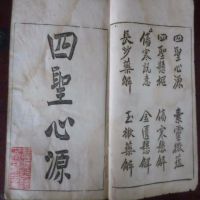 四聖心源 素靈微蘊
四聖懸樞 傷寒懸解
傷寒說意 金匱懸解
長沙藥解 玉楸藥解
四聖心源